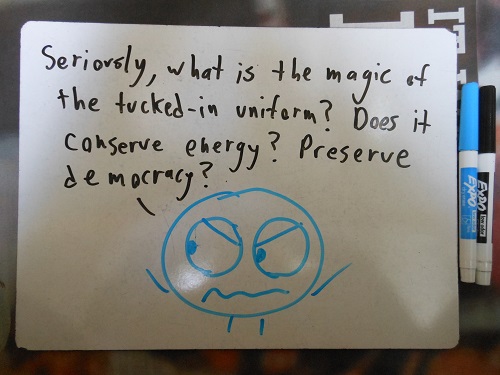 Seriously, what is the magic of
the tucked-in uniform? Does it
conserve energy? Preserve
democracy?
EXPO
EXPO